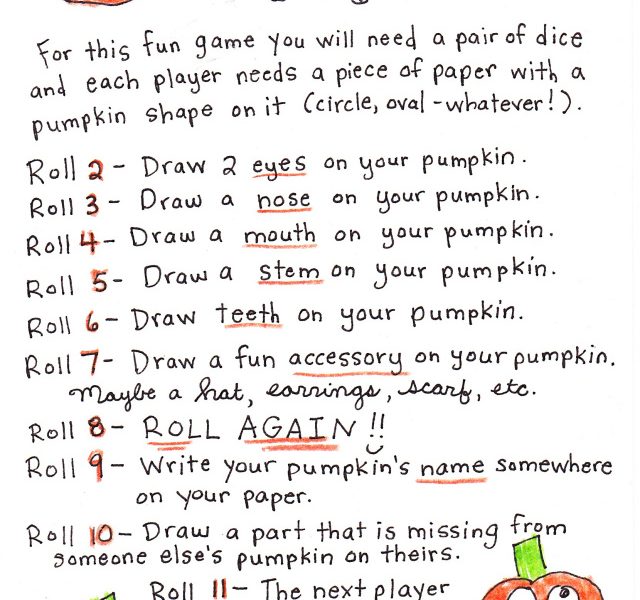 For this fun game you will need a pair of dice
and each player needs a piece of paper with a
pumpkin shape on it (circle, oval - whatever!).
Roll 2 - Draw 2 eyes on your pumpkin.
Roll 3 - Draw a nose on your pumpkin.
Roll 4 - Draw a mouth on your pumpkin.
Roll 5 - Draw a stem on your pumpkin.
Roll 6 - Draw teeth on your pumpkin.
Roll 7 - Draw a fun accessory on your pumpkin.
Maybe a hat, earrings, scarf, etc.
Roll 8 - ROLL AGAIN!!
Roll 9 - Write your pumpkin's name somewhere
on your paper.
Roll 10 - Draw a part that is missing from
someone else's pumpkin on theirs.
Roll 11 - The next player